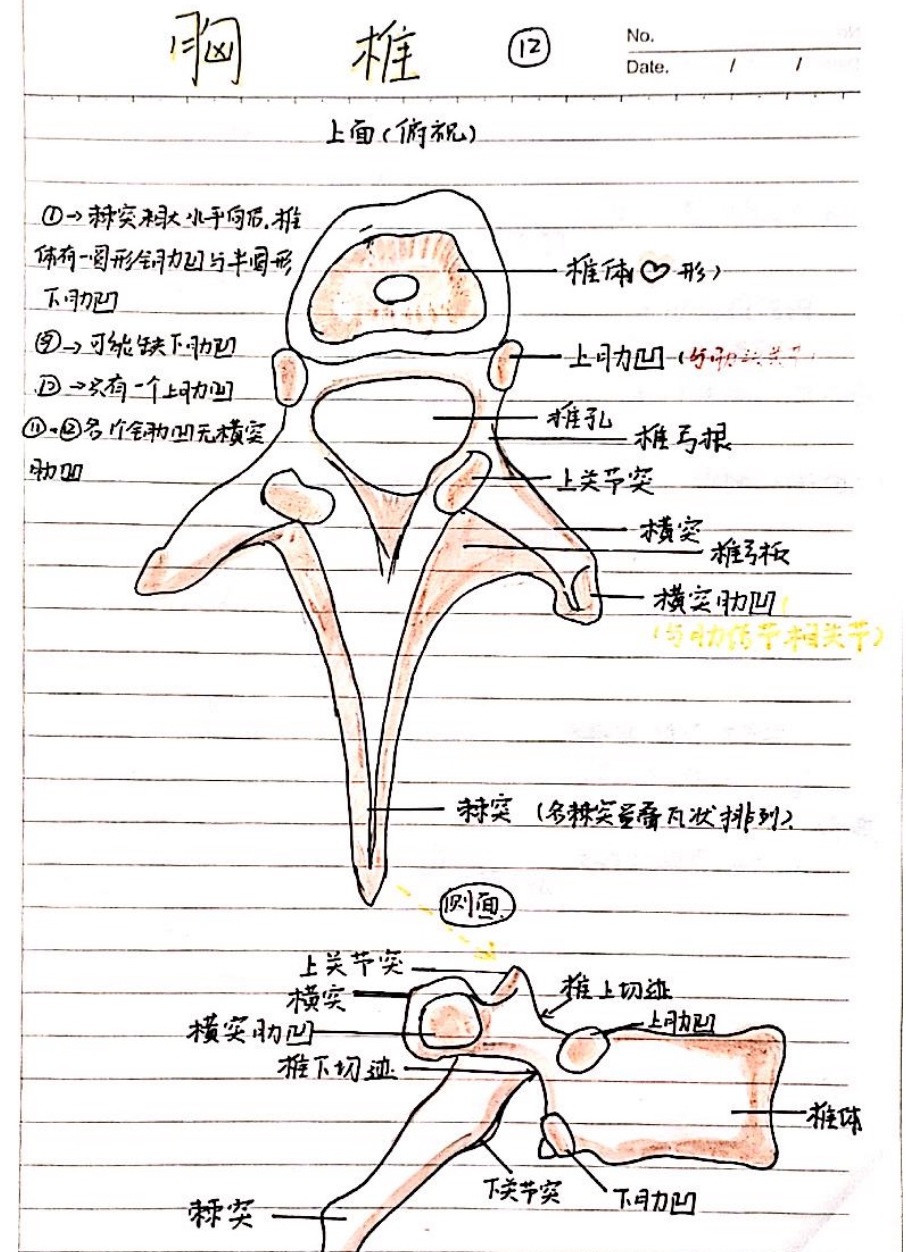 胸 椎 ⑫
No.
Date. / /
上面(俯视)
①→棘突粗大水平向后,椎
体有一圆形全肋凹与半圆形
下肋凹
⑨→可能缺下肋凹
⑩→只有一个上肋凹
⑪-⑫各个全肋凹无横突
肋凹
椎体(♡形)
上肋凹(与肋
椎孔
椎弓根
上关节突
横突
椎弓板
横突肋凹
(与肋结节相关节)
棘突 (各棘突呈叠瓦状排列)
侧面
上关节突
横突
椎上切迹
横突肋凹
上肋凹
椎下切迹
椎体
下关节突
下肋凹
棘突